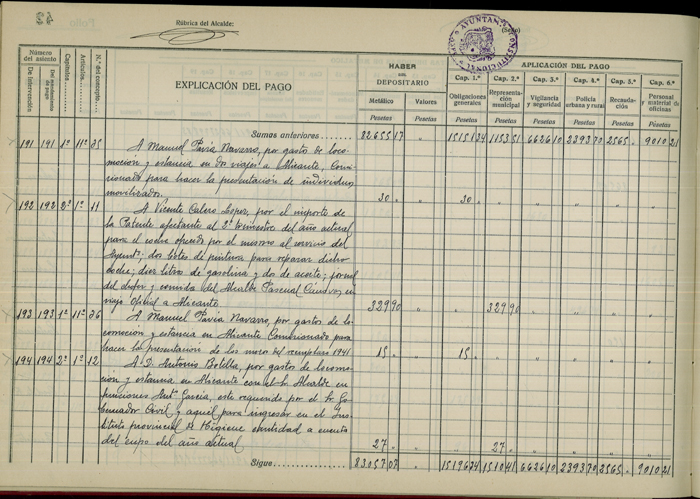 Rúbrica del Alcalde:
(Sello)
AYUNTAMIENTO CONSTITUCIONAL
Número del asiento
De intervención
Del mandamiento de pago
Capítulos
Artículos
N.º del concepto
EXPLICACIÓN DEL PAGO
HABER DEL DEPOSITARIO
Metálico
Valores
Pesetas
Pesetas
APLICACIÓN DEL PAGO
Cap. 1.º
Cap. 2.º
Cap. 3.º
Cap. 4.º
Cap. 5.º
Cap. 6.º
Obligaciones generales
Representación municipal
Vigilancia y seguridad
Policía urbana y rural
Recaudación
Personal y material de oficinas
Pesetas
Pesetas
Pesetas
Pesetas
Pesetas
Pesetas
Sumas anteriores 82655 17 " 15151 24 1153 51 6626 10 2393 70 2565 " 9010 21
191 191 1º 11º 25 A Manuel Pavia Navarro, por gastos de loco-
moción y estancia en dos viajes a Alicante, Comi-
sionado para hacer la presentación de individuos
movilizados. 30 " " 30 "
192 192 2º 1º 11 A Vicente Calero Lopez, por el importe de
la Patente afectante al 2º trimestre del año actual
para el coche ofrecido por el mismo al servicio del
Ayuntº; dos botes de pintura para reparar dicho
coche; diez litros de gasolina y dos de aceite; jornal
del chofer y comida del Alcalde Pascual Cánovas en
viaje oficial a Alicante. 329 90 " " 329 90
193 193 1º 11º 26 A Manuel Pavia Navarro, por gastos de lo-
comoción y estancia en Alicante Comisionado para
hacer la presentacion de los mozos del reemplazo 1941 15 " " 15 "
194 194 2º 1º 12 A D. Antonio Botella, por gastos de locomo-
ción y estancia en Alicante con el Sr. Alcalde en
funciones Antº Garcia, este requerido por el Sr. Go-
bernador Civil y aquel para ingresar en el Ins-
tituto provincial de Higiene cantidad a cuenta
del cupo del año actual 27 " " 27 "
Sigue 83057 07 " 15196 24 1510 41 6626 10 2393 70 2565 " 9010 21